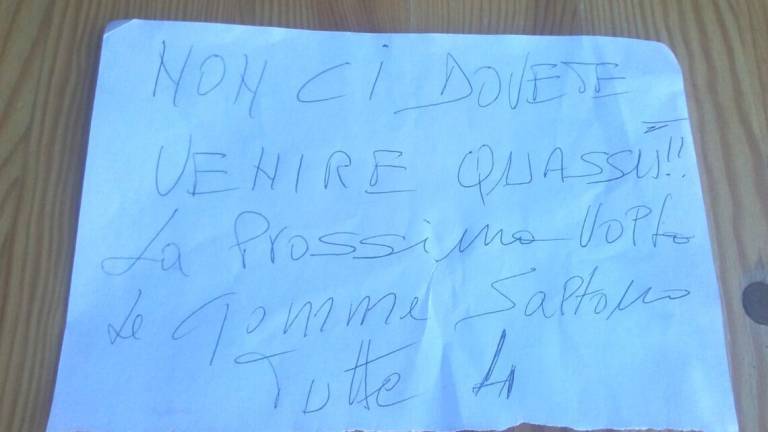 NON CI DOVETE
VENIRE QUASSÙ!!
La Prossima Volta
Le Gomme Saltano
Tutte 4